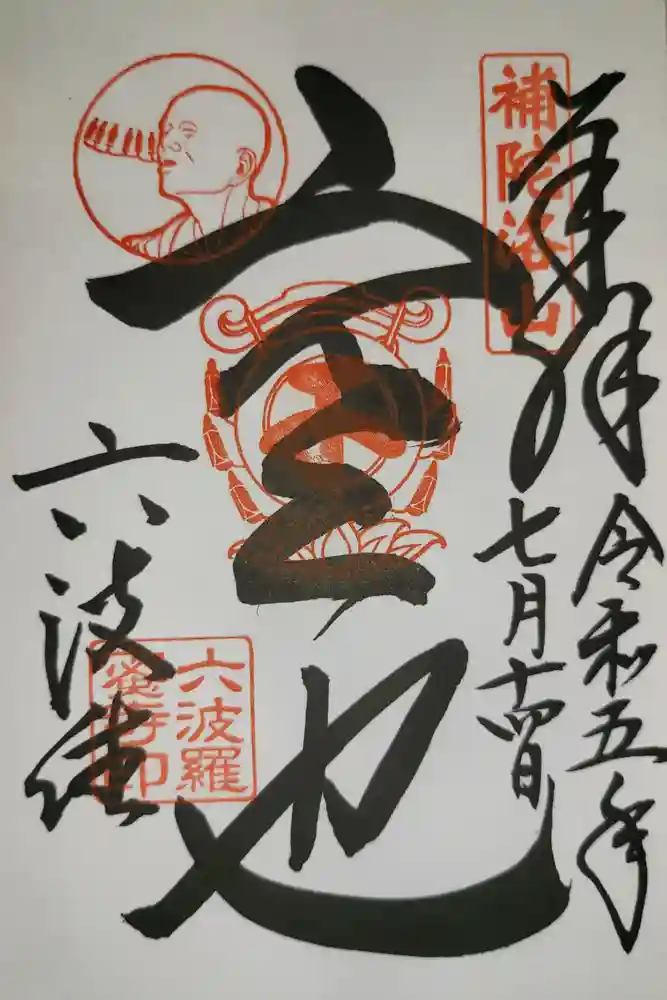 補陀洛山
奉拝
令和五年
七月十四日
空也
六波羅
六波羅
蜜寺印